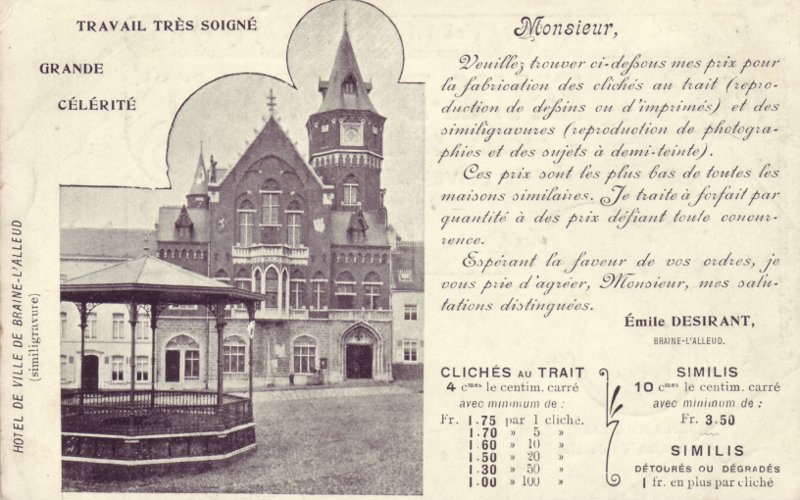 TRAVAIL TRÈS SOIGNÉ
GRANDE
CÉLÉRITÉ
HOTEL DE VILLE DE BRAINE-L'ALLEUD
(similigravure)
Monsieur,
Veuillez trouver ci-dessous mes prix pour
la fabrication des clichés au trait (repro-
duction de dessins ou d'imprimés) et des
similigravures (reproduction de photogra-
phies et des sujets à demi-teinte).
Ces prix sont les plus bas de toutes les
maisons similaires. Je traite à forfait par
quantité à des prix défiant toute concur-
rence.
Espérant la faveur de vos ordres, je
vous prie d'agréer, Monsieur, mes salu-
tations distinguées.
Émile DESIRANT,
BRAINE-L'ALLEUD.
CLICHÉS AU TRAIT
4 cmes le centim. carré
avec minimum de :
Fr. 1.75 par 1 cliché.
1.70 » 5 »
1.60 » 10 »
1.50 » 20 »
1.30 » 50 »
1.00 » 100 »
SIMILIS
10 cmes le centim. carré
avec minimum de :
Fr. 3.50
SIMILIS
DÉTOURÉS OU DÉGRADÉS
1 fr. en plus par cliché